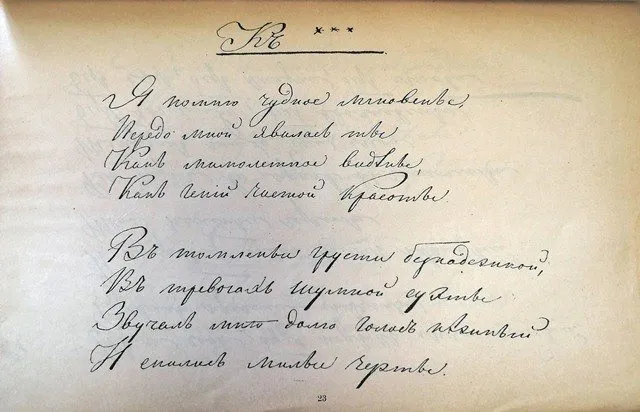 Къ ***
Я помню чудное мгновенье,
Передо мной явилась ты
Какъ мимолетное видѣнье,
Какъ геній чистой красоты
Въ томленьи грусти безнадежной,
Въ тревогахъ шумной суеты
Звучалъ мнѣ долго голосъ нѣжный
И снились милые черты.
23